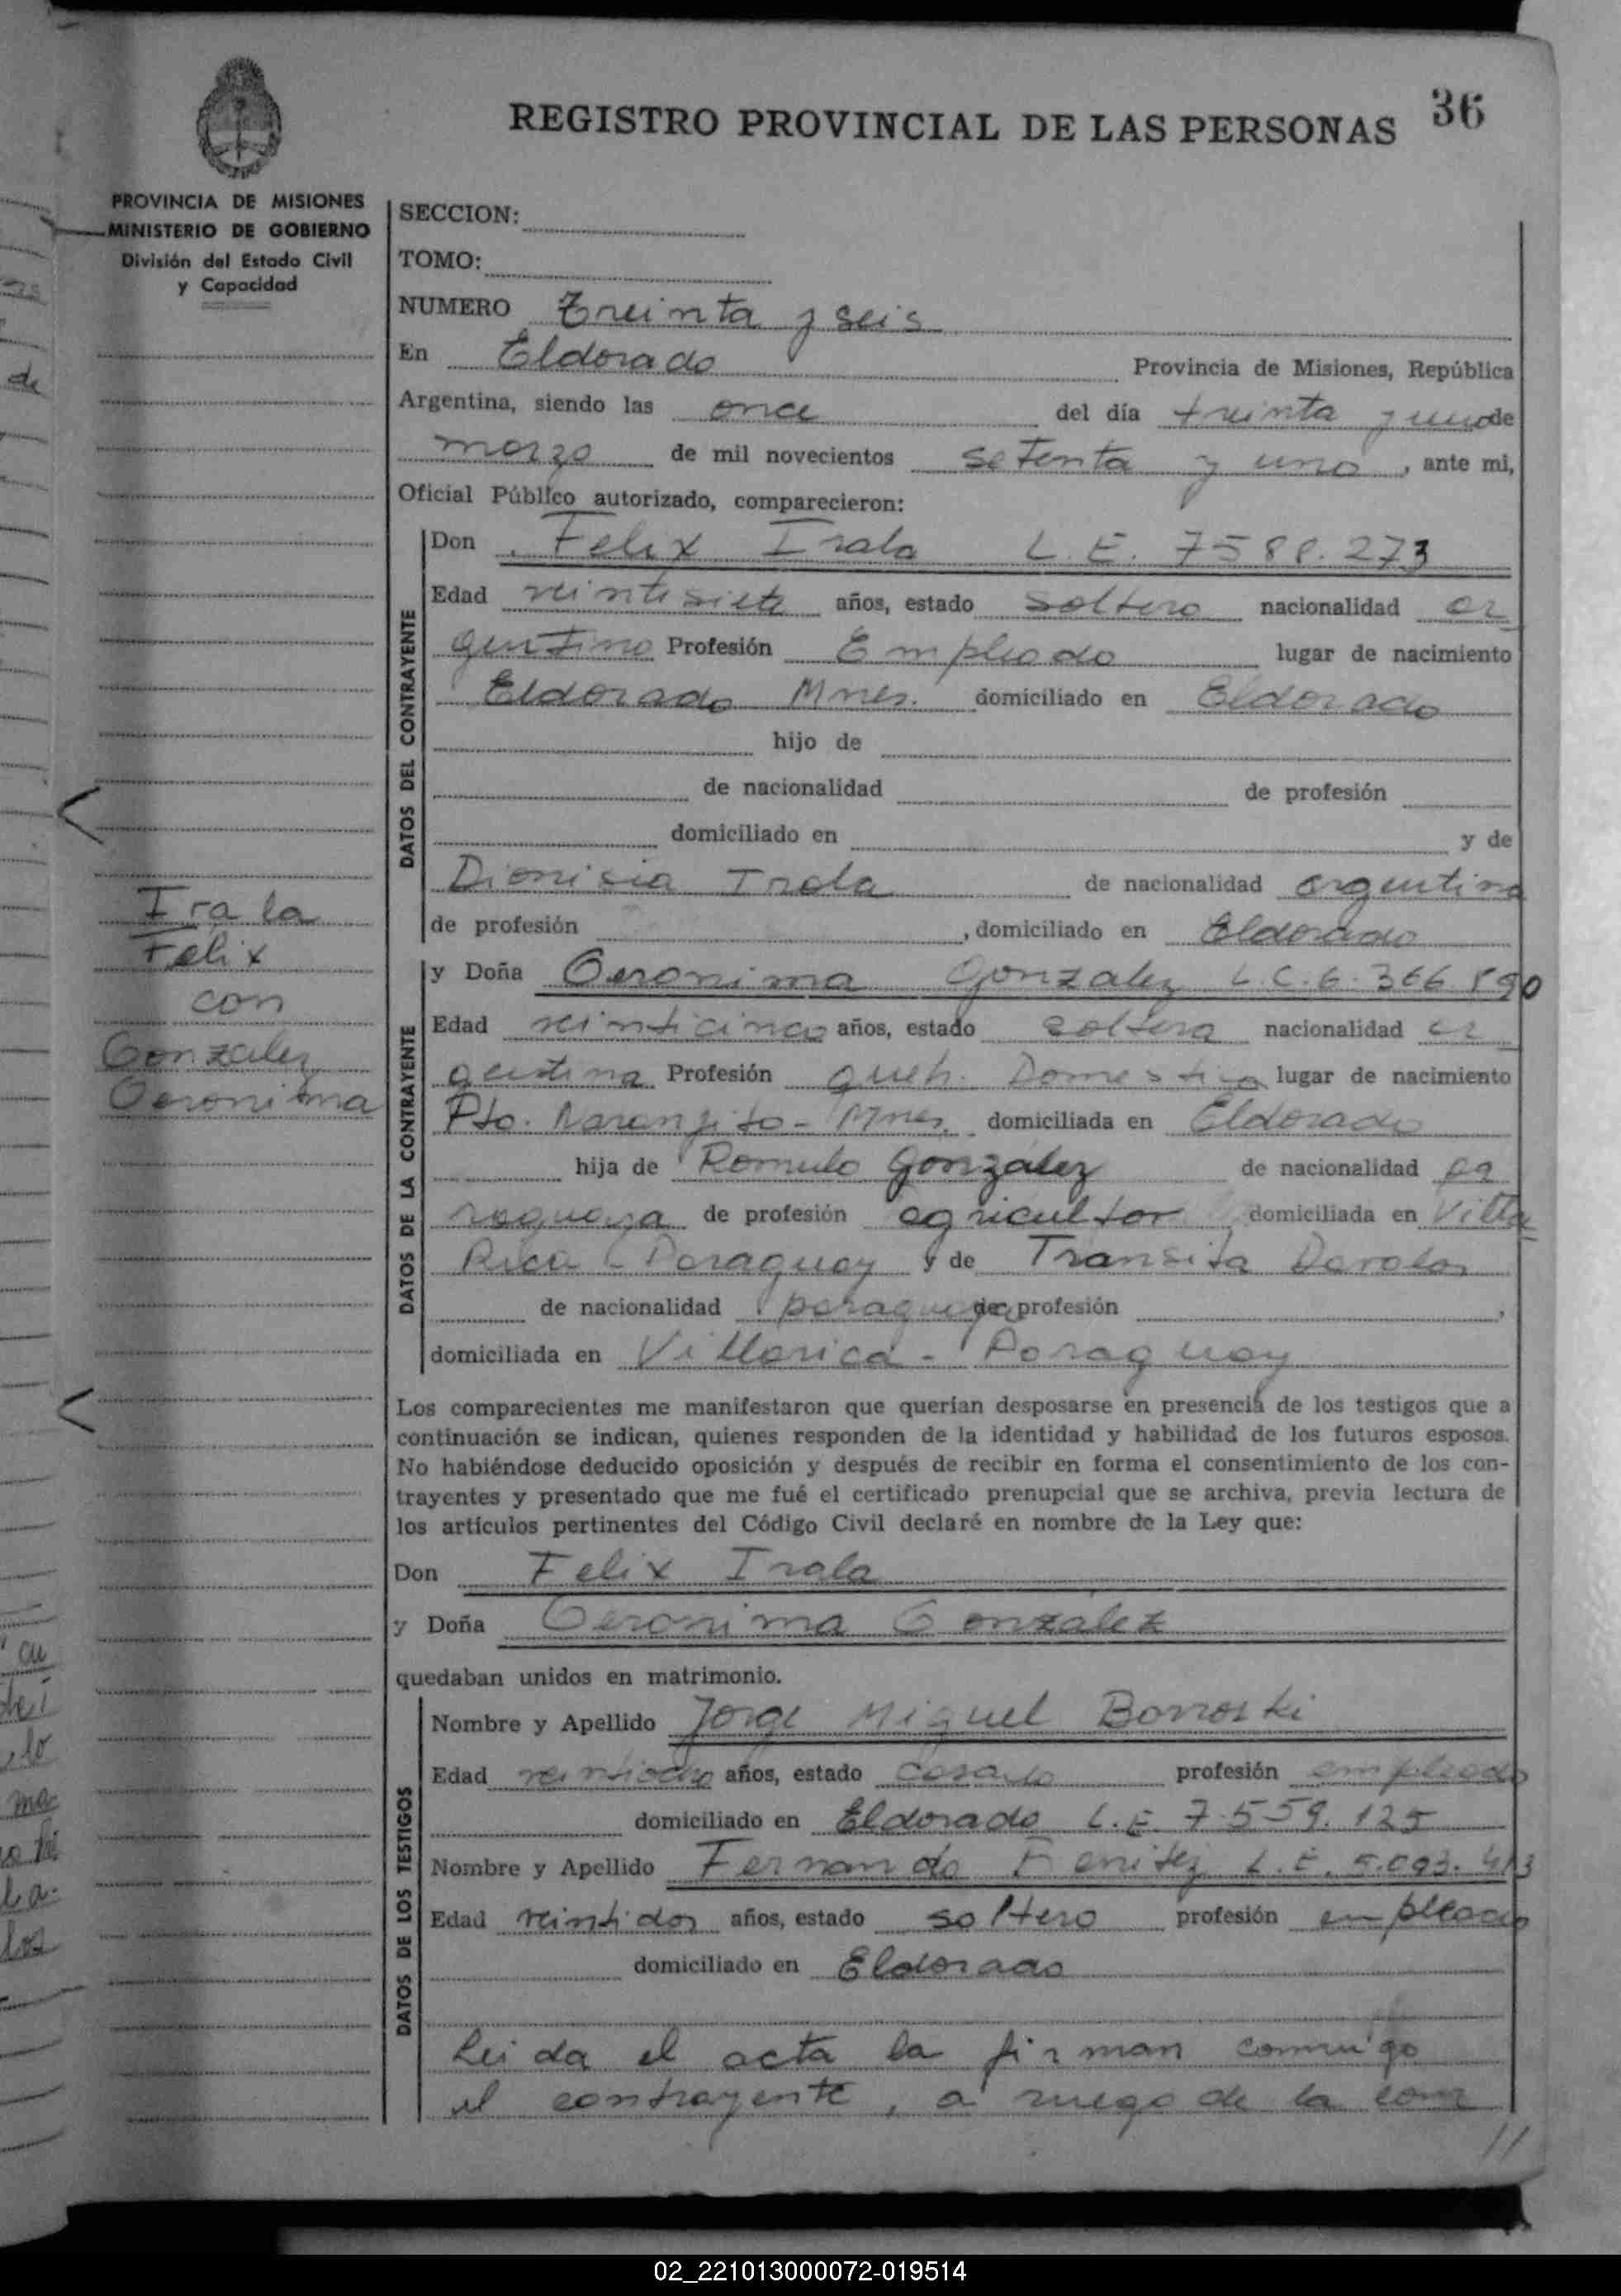 REGISTRO PROVINCIAL DE LAS PERSONAS 36
PROVINCIA DE MISIONES
MINISTERIO DE GOBIERNO
División del Estado Civil
y Capacidad
SECCION:
TOMO:
NUMERO Treinta y seis
En Eldorado Provincia de Misiones, República
Argentina, siendo las once del día treinta y uno de
marzo de mil novecientos setenta y uno, ante mi,
Oficial Público autorizado, comparecieron:
DATOS DEL CONTRAYENTE
Don Felix Irala L.E. 7588.273
Edad veintisiete años, estado soltero nacionalidad ar
gentino Profesión Empleado lugar de nacimiento
Eldorado Mnes. domiciliado en Eldorado
hijo de
de nacionalidad de profesión
domiciliado en y de
Dionisia Irala de nacionalidad argentina
de profesión , domiciliado en Eldorado
Irala
Felix
con
Gonzalez
Geronima
DATOS DE LA CONTRAYENTE
y Doña Geronima Gonzalez L.C. 6.366.890
Edad veinticinco años, estado soltera nacionalidad ar
gentina Profesión queh. Domestica lugar de nacimiento
Pto. Naranjito - Mnes. domiciliada en Eldorado
hija de Romulo Gonzalez de nacionalidad pa
raguaya de profesión agricultor domiciliada en Villa
Rica - Paraguay y de Transita Davalos
de nacionalidad paraguaya de profesión ,
domiciliada en Villarica - Paraguay
Los comparecientes me manifestaron que querían desposarse en presencia de los testigos que a
continuación se indican, quienes responden de la identidad y habilidad de los futuros esposos.
No habiéndose deducido oposición y después de recibir en forma el consentimiento de los con-
trayentes y presentado que me fué el certificado prenupcial que se archiva, previa lectura de
los artículos pertinentes del Código Civil declaré en nombre de la Ley que:
Don Felix Irala
y Doña Geronima Gonzalez
quedaban unidos en matrimonio.
DATOS DE LOS TESTIGOS
Nombre y Apellido Jorge Miguel
Edad veintiocho años, estado casado profesión empleado
domiciliado en Eldorado L.E. 7.559.125
Nombre y Apellido Fernando Benitez L.E. 5.093.413
Edad veintidos años, estado soltero profesión empleado
domiciliado en Eldorado
Leida el acta la firman conmigo
el contrayente, a ruego de la con
//
02_221013000072-019514